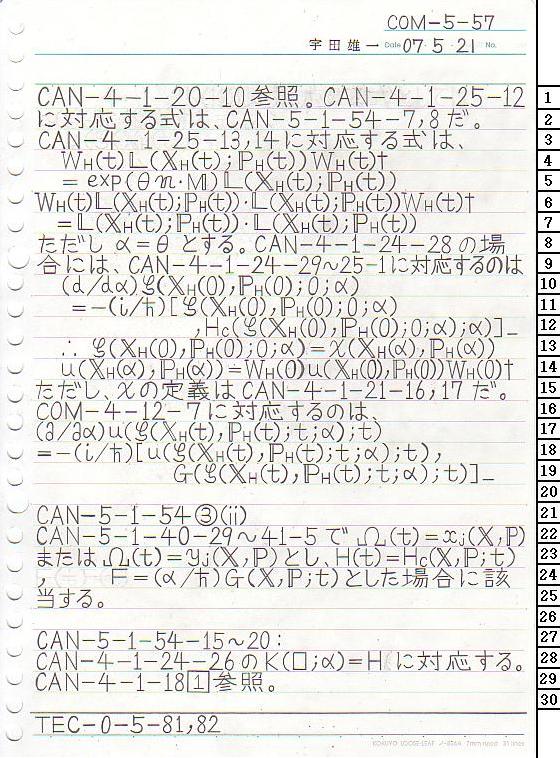 COM-5-57
宇田雄一 Date 07・5・21 No.
CAN-4-1-20-10参照。CAN-4-1-25-12
に対応する式は、CAN-5-1-54-7,8だ。
CAN-4-1-25-13,14に対応する式は、
W_H(t)𝕃(𝕏_H(t);ℙ_H(t))W_H(t)†
=exp(θ𝕟·𝕄)𝕃(𝕏_H(t);ℙ_H(t))
W_H(t)𝕃(𝕏_H(t);ℙ_H(t))·𝕃(𝕏_H(t);ℙ_H(t))W_H(t)†
=𝕃(𝕏_H(t);ℙ_H(t))·𝕃(𝕏_H(t);ℙ_H(t))
ただし α=θ とする。CAN-4-1-24-28の場
合には、CAN-4-1-24-29~25-1に対応するのは
(d/dα)𝒢(𝕏_H(0),ℙ_H(0);0;α)
=-(i/ħ)[𝒢(𝕏_H(0),ℙ_H(0);0;α)
,H_c(𝒢(𝕏_H(0),ℙ_H(0);0;α);α)]_-
∴ 𝒢(𝕏_H(0),ℙ_H(0);0;α)=χ(𝕏_H(α),ℙ_H(α))
u(𝕏_H(α),ℙ_H(α))=W_H(0)u(𝕏_H(0),ℙ_H(0))W_H(0)†
ただし、χの定義はCAN-4-1-21-16,17だ。
COM-4-12-7に対応するのは、
(∂/∂α)u(𝒢(𝕏_H(t),ℙ_H(t);t;α);t)
=-(i/ħ)[u(𝒢(𝕏_H(t),ℙ_H(t);t;α);t),
G(𝒢(𝕏_H(t),ℙ_H(t);t;α);t)]_-
CAN-5-1-54③(ii)
CAN-5-1-40-29~41-5で Ω(t)=x_j(𝕏,ℙ)
または Ω(t)=y_j(𝕏,ℙ)とし、H(t)=H_c(𝕏,ℙ;t)
, F=(α/ħ)G(𝕏,ℙ;t)とした場合に該
当する。
CAN-5-1-54-15~20:
CAN-4-1-24-26のK(□;α)=Hに対応する。
CAN-4-1-18[1]参照。
TEC-0-5-81,82
KOKUYO LOOSE-LEAF ノ-836A 7mm ruled 31 lines
1
2
3
4
5
6
7
8
9
10
11
12
13
14
15
16
17
18
19
20
21
22
23
24
25
26
27
28
29
30